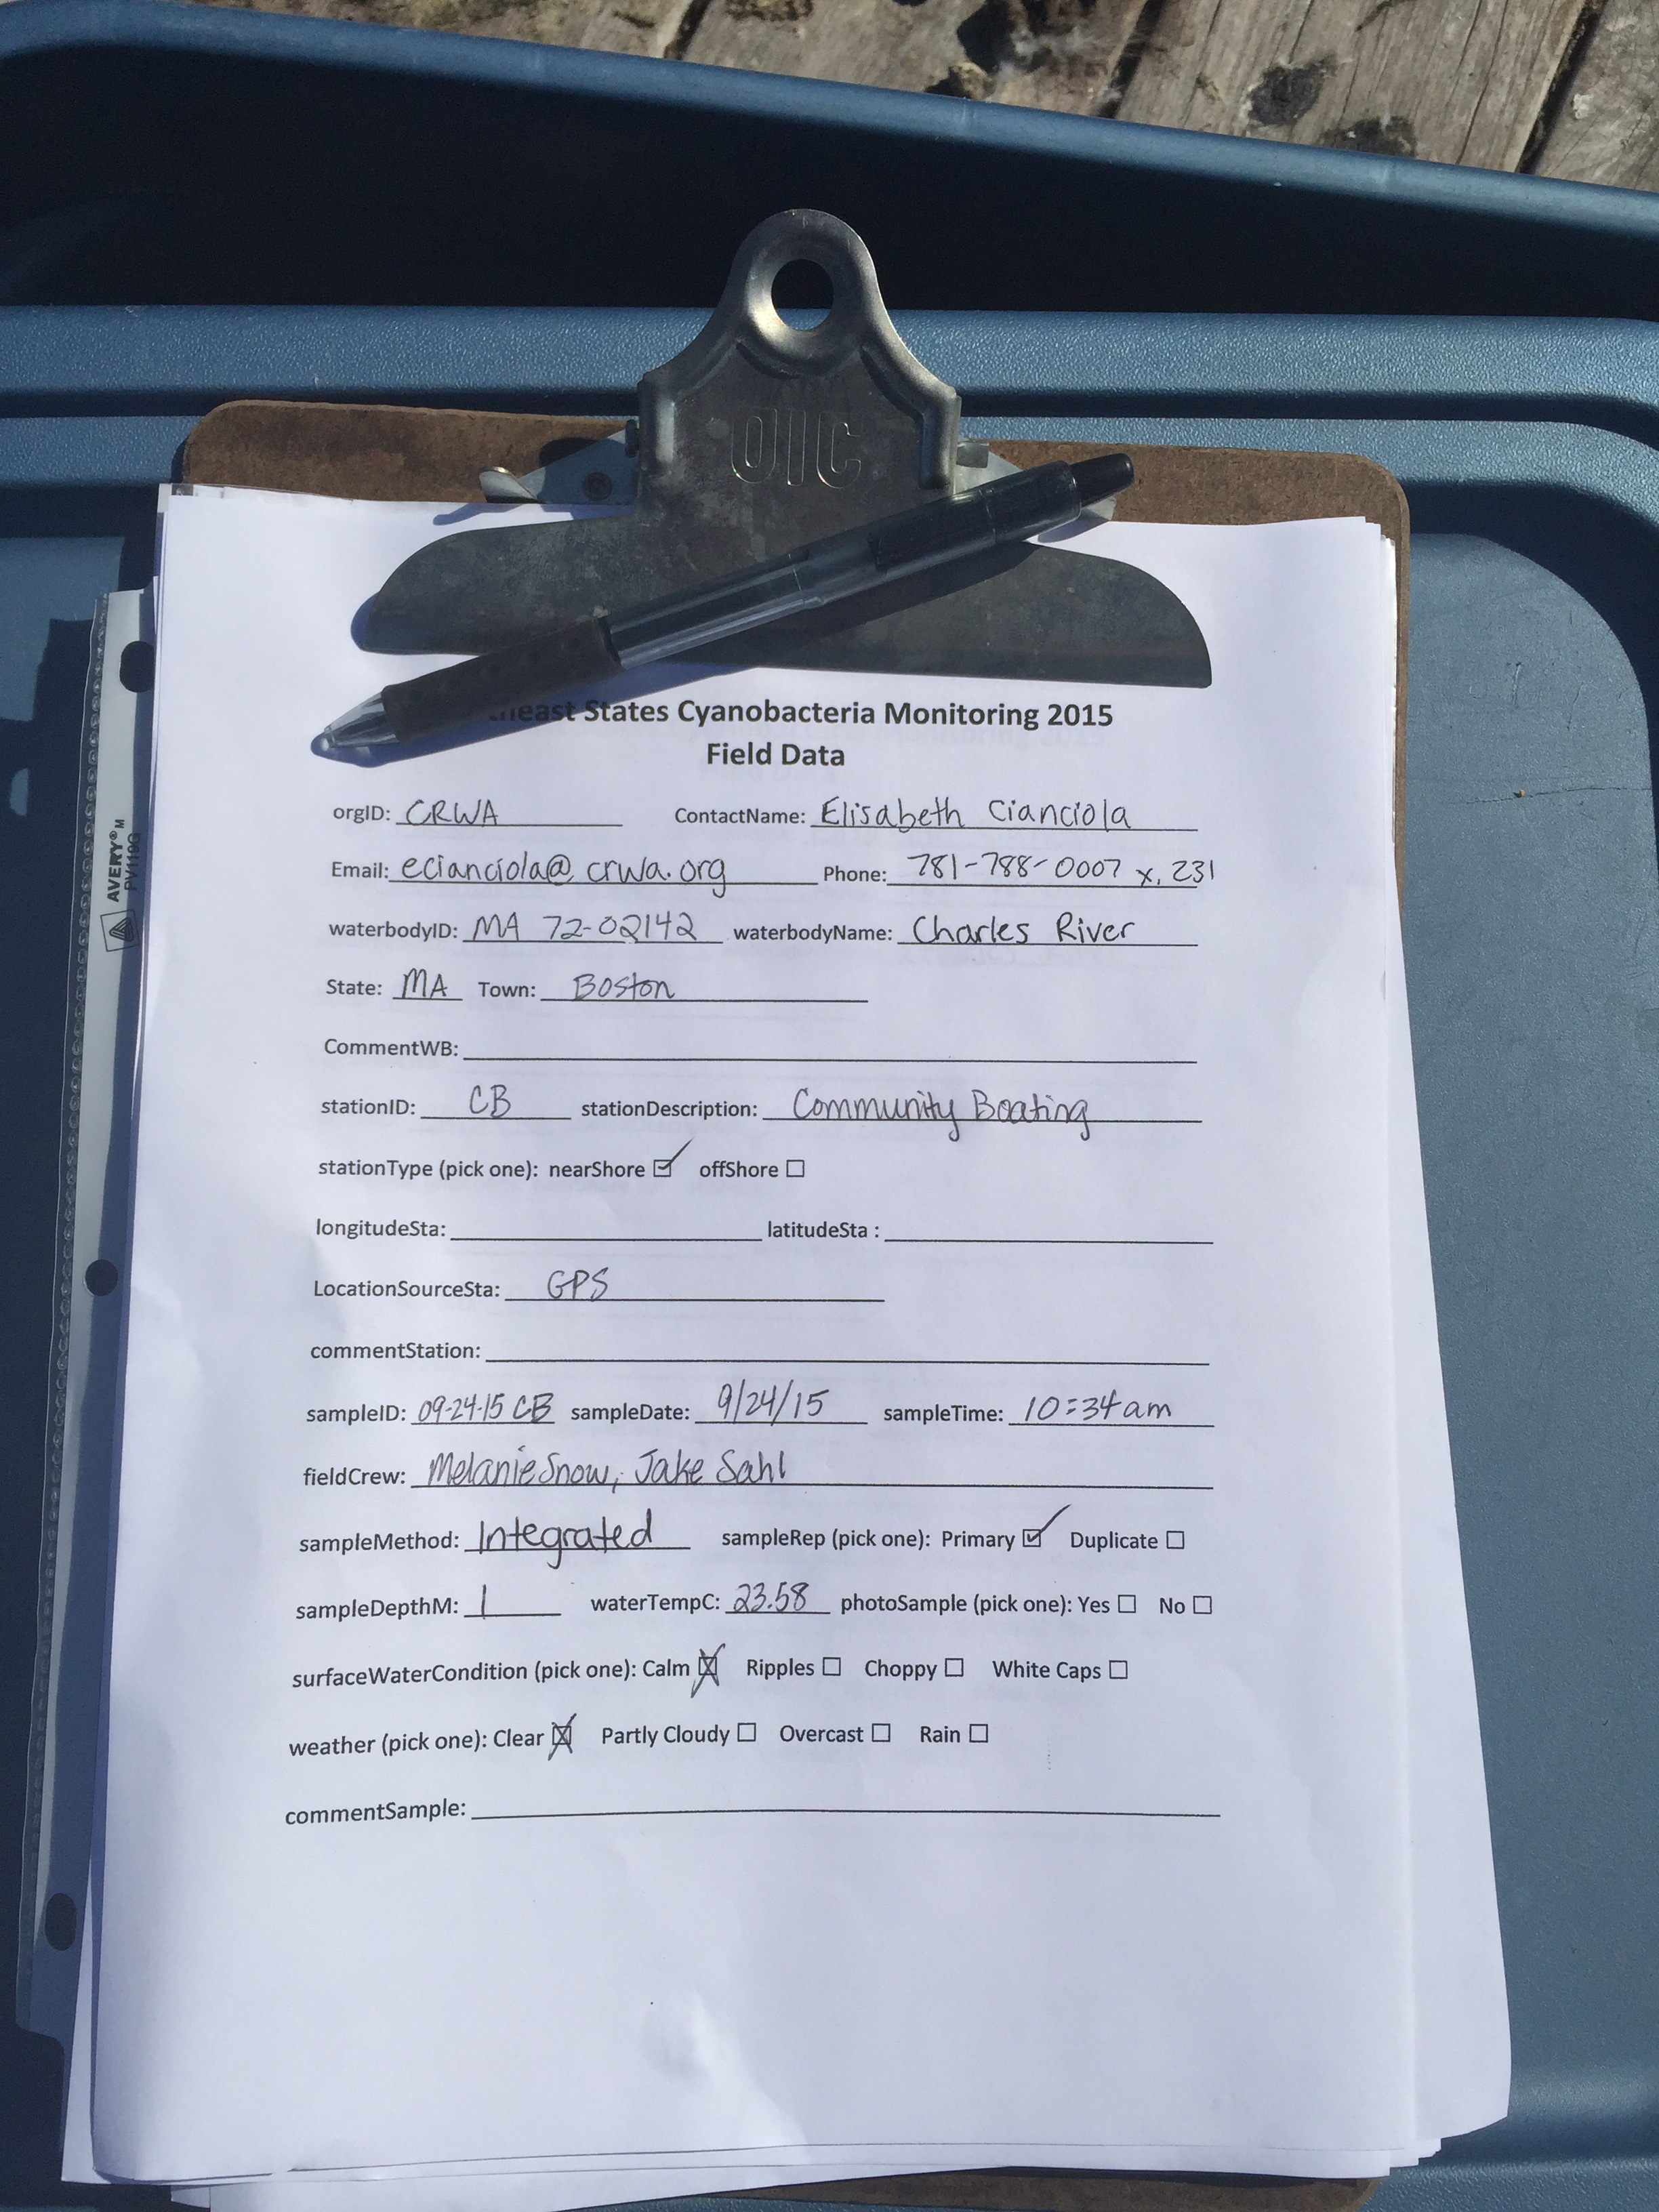 OIC
States Cyanobacteria Monitoring 2015
Field Data
orgID: CRWA ContactName: Elisabeth Cianciola
Email: ecianciola@crwa.org Phone: 781-788-0007 x. 231
waterbodyID: MA 72-02142 waterbodyName: Charles River
State: MA Town: Boston
CommentWB:
stationID: CB stationDescription: Community Boating
stationType (pick one): nearShore ☑ offShore ☐
longitudeSta: latitudeSta :
LocationSourceSta: GPS
commentStation:
sampleID: 09-24-15 CB sampleDate: 9/24/15 sampleTime: 10:34am
fieldCrew: Melanie Snow, Jake Sahl
sampleMethod: Integrated sampleRep (pick one): Primary ☑ Duplicate ☐
sampleDepthM: 1 waterTempC: 23.58 photoSample (pick one): Yes ☐ No ☐
surfaceWaterCondition (pick one): Calm ☒ Ripples ☐ Choppy ☐ White Caps ☐
weather (pick one): Clear ☒ Partly Cloudy ☐ Overcast ☐ Rain ☐
commentSample:
AVERY®
PV119G